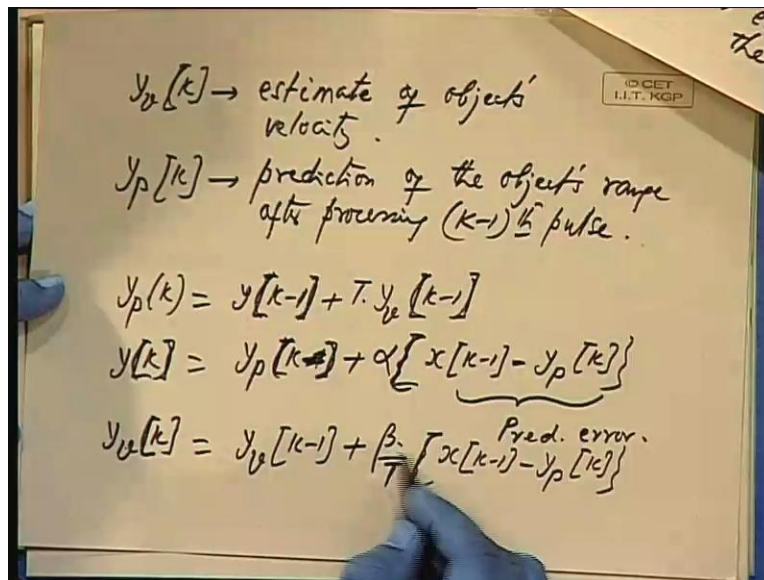 y_v[k] → estimate of object's
velocity.
© CET
I.I.T. KGP
y_p[k] → prediction of the object's range
after processing (k-1)th pulse.
y_p(k) = y[k-1] + T. y_v[k-1]
y[k] = y_p[k] + α{x[k-1] - y_p[k]}
Pred. error.
y_v[k] = y_v[k-1] + β/T {x[k-1] - y_p[k]}
the